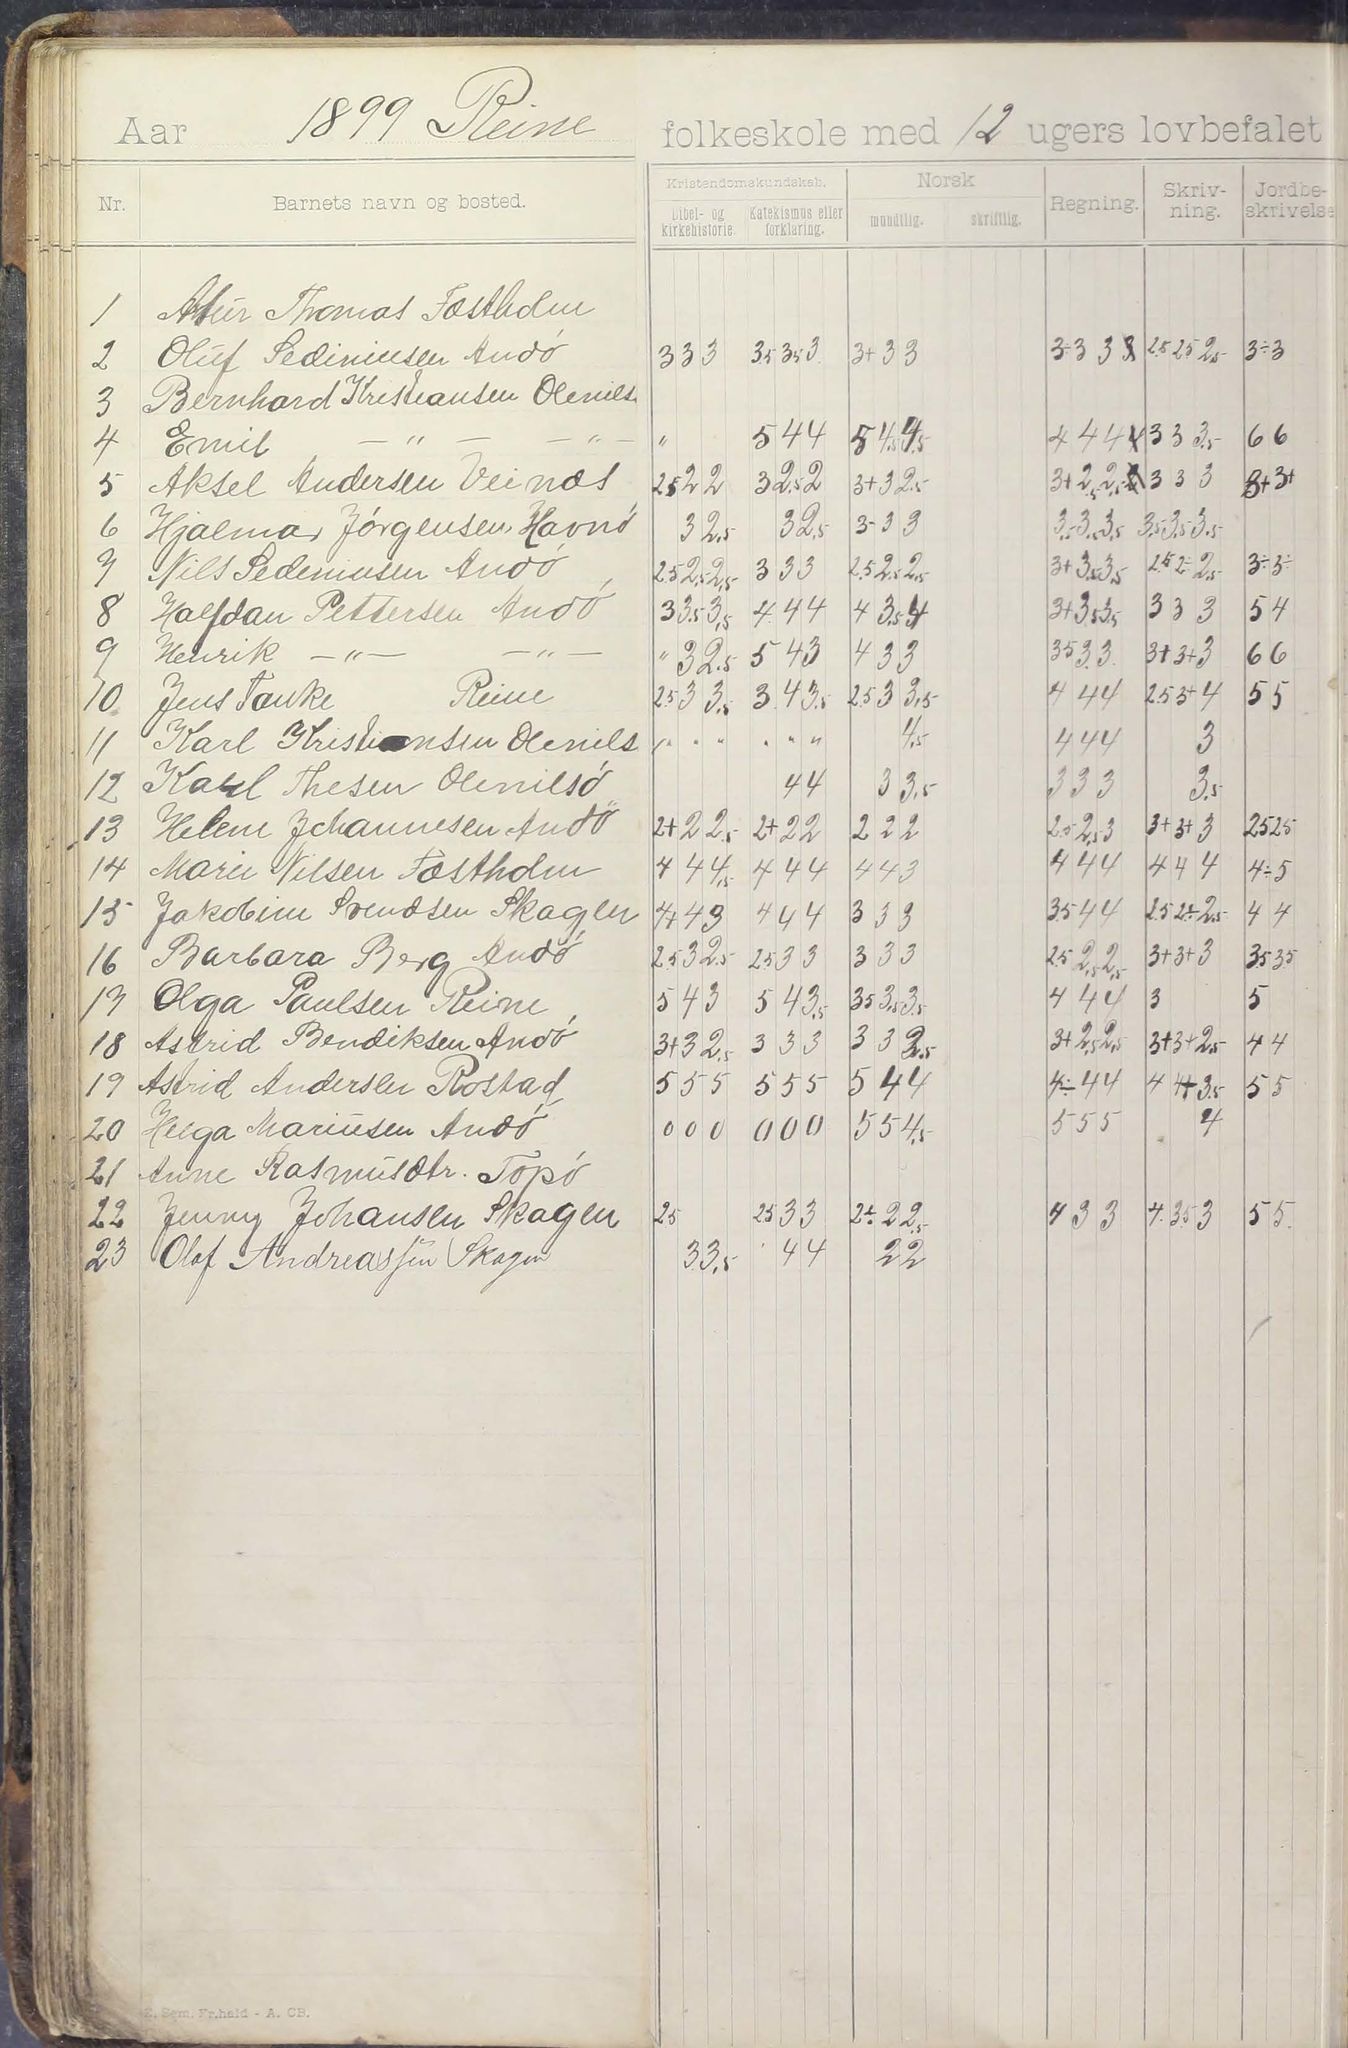 Aar 1899 Reine folkeskole med 12 ugers lovbefalet
Nr. Barnets navn og bosted. Kristendomskundskab. Norsk Regning. Skriv-ning. Jordbe-skrivelse
Bibel- og kirkehistorie. Katekismus eller forklaring. mundtlig. skriftlig.
1 Artur Thomas Fæstholm
2 Oluf Sediniusen Andö 3 3 3 3,5 3,5 3 3+ 3 3 3÷ 3 3 2,5 2,5 2,5 3÷ 3
3 Bernhard Kristiansen Olenils
4 Emil — " — — " — " 5 4 4 5 4,5 4,5 4 4 4 3 3 3,5 6 6
5 Aksel Andersen Veinæs 2,5 2 2 3 2,5 2 3+ 3 2,5 3+ 2,5 2,5 3 3 3 3+ 3+
6 Hjalmar Jörgensen Havnö 3 2,5 3 2,5 3- 3 3 3,5 3,5 3,5 3,5 3,5 3,5
7 Nils Sedeniusen Andö 2,5 2,5 2,5 3 3 3 2,5 2,5 2,5 3+ 3,5 3,5 2,5 2÷ 2,5 3÷ 3÷
8 Halfdan Pettersen Andö 3 3,5 3,5 4 4 4 4 3,5 4 3+ 3,5 3,5 3 3 3 5 4
9 Henrik — " — — " — " 3 2,5 5 4 3 4 3 3 3,5 3 3 3+ 3+ 3 6 6
10 Jens Tanke Reine 2,5 3 3,5 3 4 3,5 2,5 3 3,5 4 4 4 2,5 3+ 4 5 5
11 Karl Kristiansen Olenils " " " " " " 4,5 4 4 4 3
12 Karl Thesen Olenilsö 4 4 3 3,5 3 3 3 3,5
13 Helene Johannesen Andö 2+ 2 2,5 2+ 2 2 2 2 2 2,5 2,5 3 3+ 3+ 3 2,5 2,5
14 Marie Nilsen Fæstholm 4 4 4,5 4 4 4 4 4 3 4 4 4 4 4 4 4÷ 5
15 Jakobine Svendsen Skagen 4+ 4 3 4 4 4 3 3 3 3,5 4 4 2,5 2÷ 2,5 4 4
16 Barbara Berg Andö 2,5 3 2,5 2,5 3 3 3 3 3 2,5 2,5 2,5 3+ 3+ 3 3,5 3,5
17 Olga Paulsen Reine 5 4 3 5 4 3,5 3,5 3,5 3,5 4 4 4 3 5
18 Astrid Bendiksen Andö 3+ 3 2,5 3 3 3 3 3 2,5 3+ 2,5 2,5 3+ 3+ 2,5 4 4
19 Astrid Andersen Rostad 5 5 5 5 5 5 5 4 4 4÷ 4 4 4 4+ 3,5 5 5
20 Helga Mariusen Andö 0 0 0 0 0 0 5 5 4,5 5 5 5 4
21 Anne Rasmusdtr. Topö
22 Jenny Johansen Skagen 2,5 2,5 3 3 2÷ 2 2,5 4 3 3 4 3,5 3 5 5
23 Olaf Andreassen Skagen 3 3,5 4 4 2 2
E. Sem, Fr.hald - A. CB.